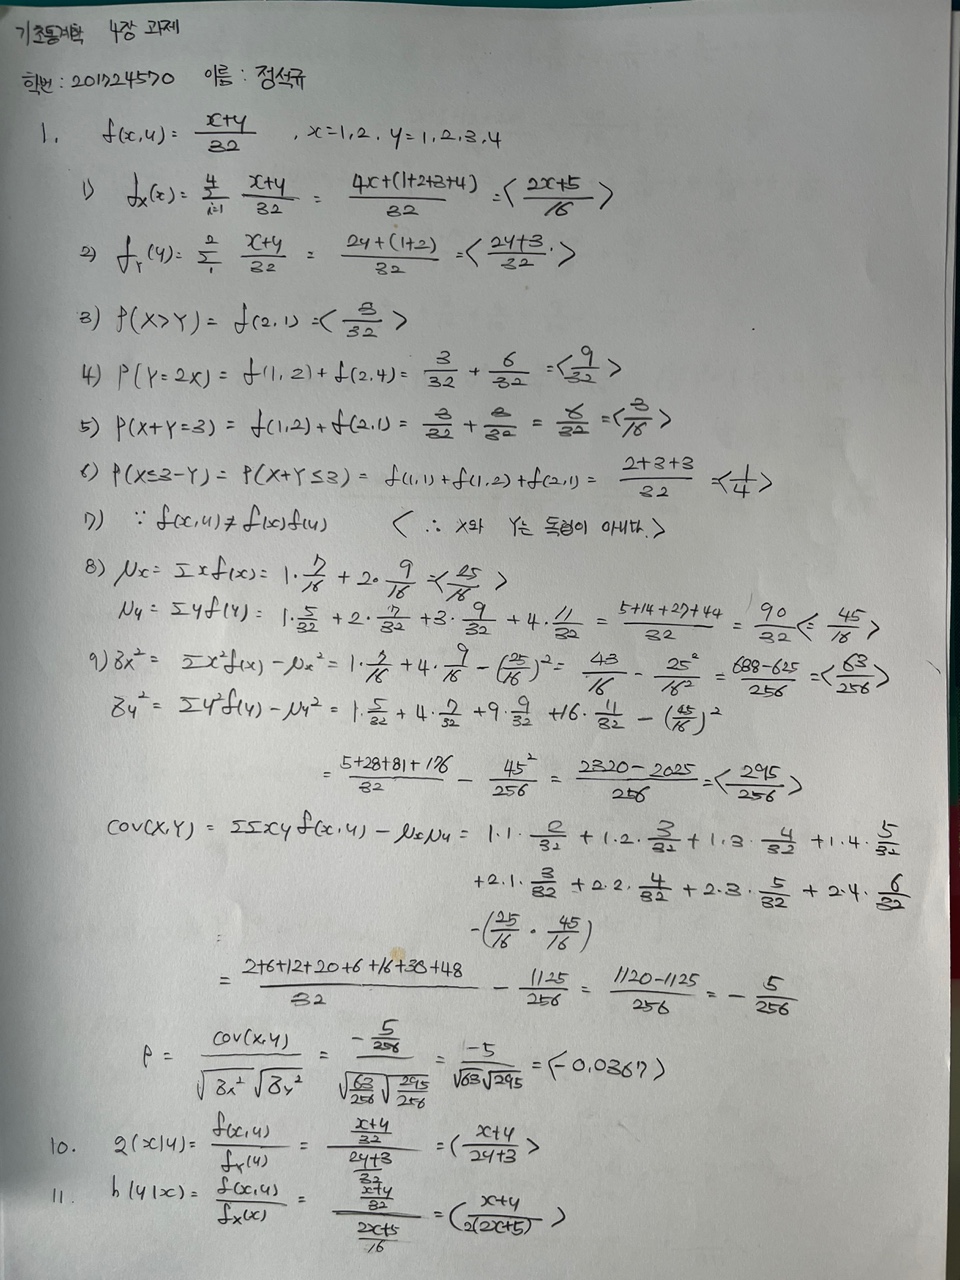 기초통계학 4장 과제
학번 : 201724570 이름 : 정석규
1. f(x,y) = (x+y)/32 , x=1,2, y=1,2,3,4
1) f_X(x) = Σ(i=1→4) (x+y)/32 = (4x+(1+2+3+4))/32 = < (2x+5)/16 >
2) f_Y(y) = Σ(1→2) (x+y)/32 = (2y+(1+2))/32 = < (2y+3)/32 >
3) P(X>Y) = f(2,1) = < 3/32 >
4) P(Y=2X) = f(1,2)+f(2,4) = 3/32 + 6/32 = < 9/32 >
5) P(X+Y=3) = f(1,2)+f(2,1) = 3/32 + 3/32 = 6/32 = < 3/16 >
6) P(X≤3-Y) = P(X+Y≤3) = f(1,1)+f(1,2)+f(2,1) = (2+3+3)/32 = < 1/4 >
7) ∵ f(x,y) ≠ f(x)f(y) < ∴ X와 Y는 독립이 아니다. >
8) μx = Σxf(x) = 1·7/16 + 2·9/16 = < 25/16 >
μy = Σyf(y) = 1·5/32 + 2·7/32 + 3·9/32 + 4·11/32 = (5+14+27+44)/32 = 90/32 = < 45/16 >
9) σx² = Σx²f(x) - μx² = 1·7/16 + 4·9/16 - (25/16)² = 43/16 - 25²/16² = (688-625)/256 = < 63/256 >
σy² = Σy²f(y) - μy² = 1·5/32 + 4·7/32 + 9·9/32 + 16·11/32 - (45/16)²
= (5+28+81+176)/32 - 45²/256 = (2320-2025)/256 = < 295/256 >
COV(X,Y) = ΣΣxyf(x,y) - μxμy = 1·1·2/32 + 1·2·3/32 + 1·3·4/32 + 1·4·5/32
+2·1·3/32 + 2·2·4/32 + 2·3·5/32 + 2·4·6/32
-(25/16 · 45/16)
= (2+6+12+20+6+16+30+48)/32 - 1125/256 = (1120-1125)/256 = - 5/256
ρ = cov(x,y)/(√σx² √σy²) = (-5/256)/(√(63/256) √(295/256)) = -5/(√63√295) = < -0.0367 >
10. g(x|y) = f(x,y)/f_Y(y) = ((x+y)/32)/((2y+3)/32) = < (x+y)/(2y+3) >
11. h(y|x) = f(x,y)/f_X(x) = ((x+y)/32)/((2x+5)/16) = < (x+y)/(2(2x+5)) >